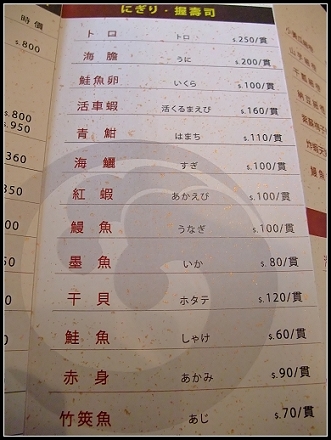 にぎり・握壽司
時價
s.800
トロ トロ s.250/貫
海膽 うに s.200/貫
鮭魚卵 いくら s.100/貫
活車蝦 活くるまえび s.160/貫
青魽 はまち s.110/貫
海鱺 すぎ s.100/貫
紅蝦 あかえび s.100/貫
鰻魚 うなぎ s.100/貫
墨魚 いか s.80/貫
干貝 ホタテ s.120/貫
鮭魚 しゃけ s.60/貫
赤身 あかみ s.90/貫
竹筴魚 あじ s.70/貫
s.800
s.950
360
350